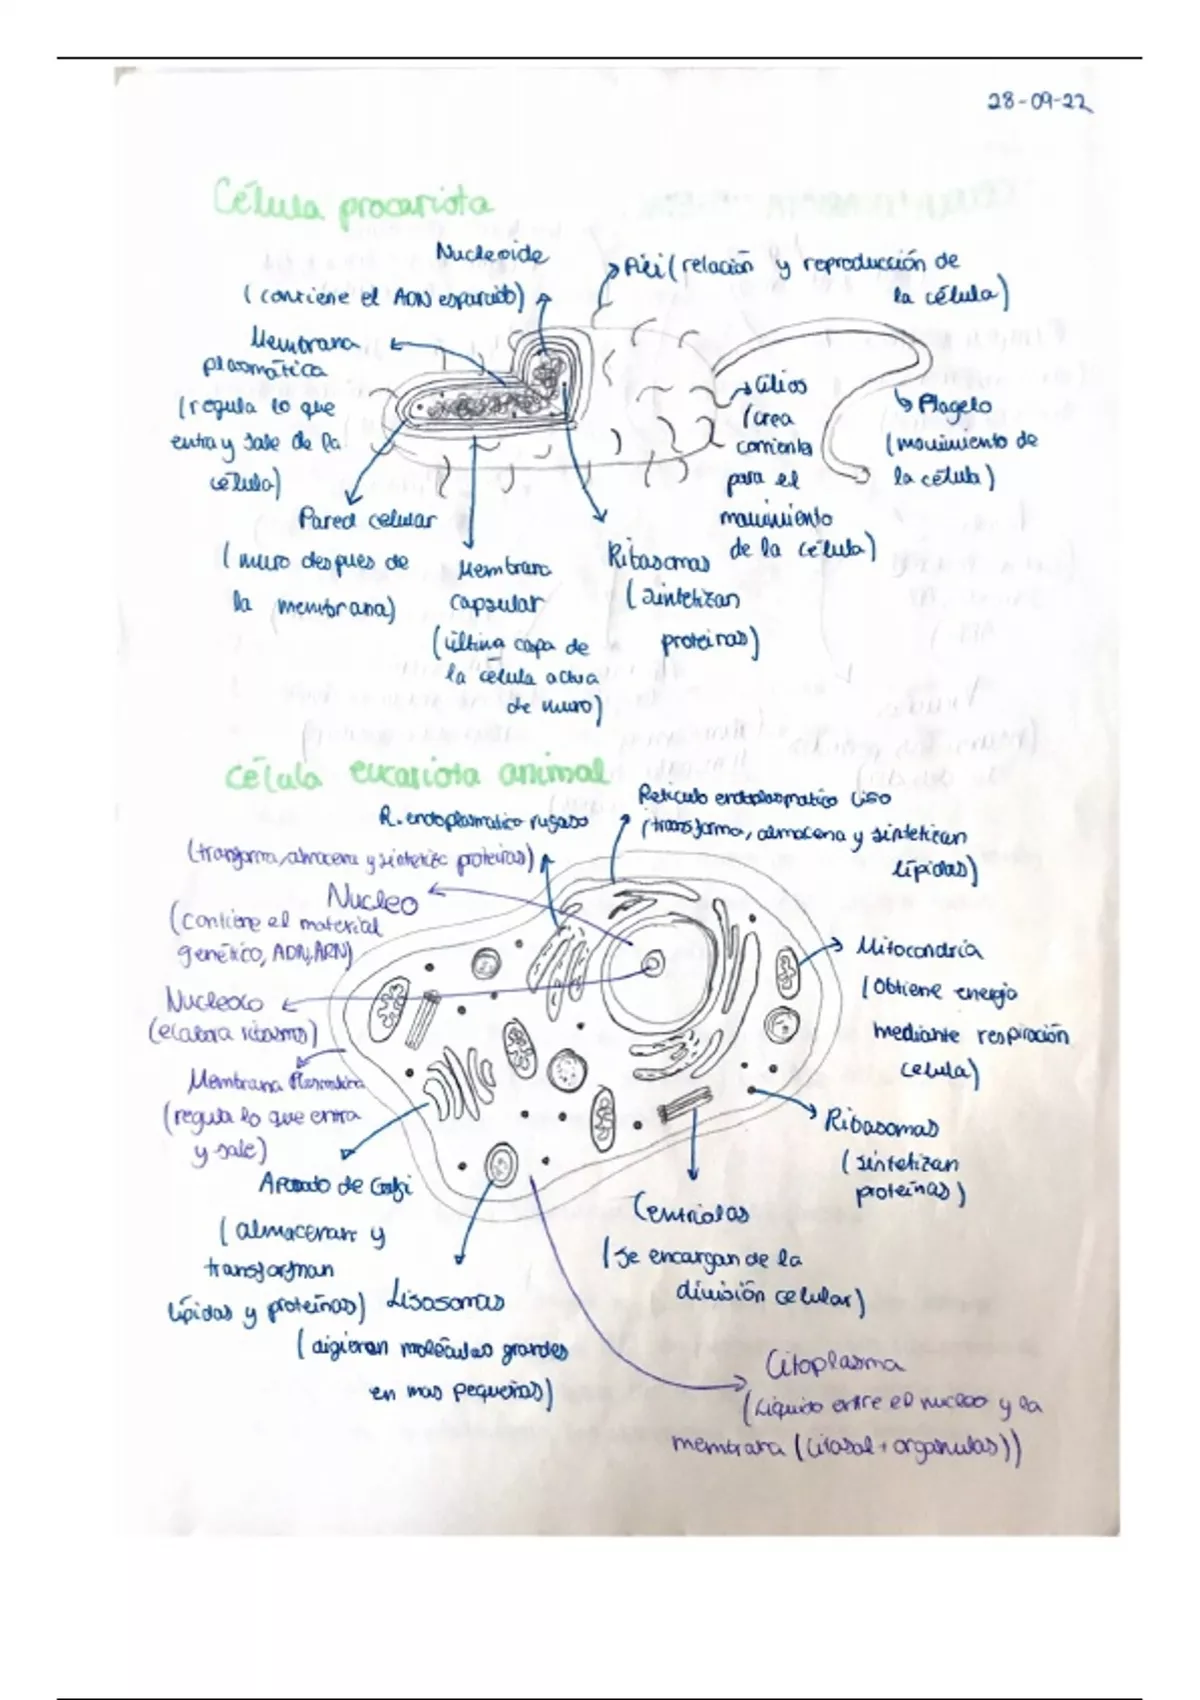 28-09-22
Célula procariota
Nucleoide
(contiene el ADN esparcido)
Pili (relación y reproducción de
la célula)
Membrana
plasmática
(regula lo que
entra y sale de la
célula)
Cilios
(crea
corrientes
para el
movimiento
de la célula)
Flagelo
(movimiento de
la célula)
Pared celular
(muro despues de
la membrana)
Membrana
capsular
(última capa de
la célula actua
de muro)
Ribosomas
(sintetizan
proteinas)
célula eucariota animal
R. endoplasmatico rugoso
(transforma, almacena y sintetiza proteinas)
Reticulo endoplasmatico liso
(transforma, almacena y sintetizan
lípidos)
Nucleo
(contiene el material
genético, ADN, ARN)
Nucleolo
(elabora ribosomas)
Membrana Plasmatica
(regula lo que entra
y sale)
Mitocondria
(Obtiene energia
mediante respiración
celula)
Ribosomas
(sintetizan
proteínas)
Aparato de Golgi
(almacenan y
transforman
lípidos y proteínas)
Lisosomas
(digieren moléculas grandes
en mas pequeñas)
Centriolos
(se encargan de la
división celular)
Citoplasma
(Liquido entre el nucleo y la
membrana (citosol + organulos))